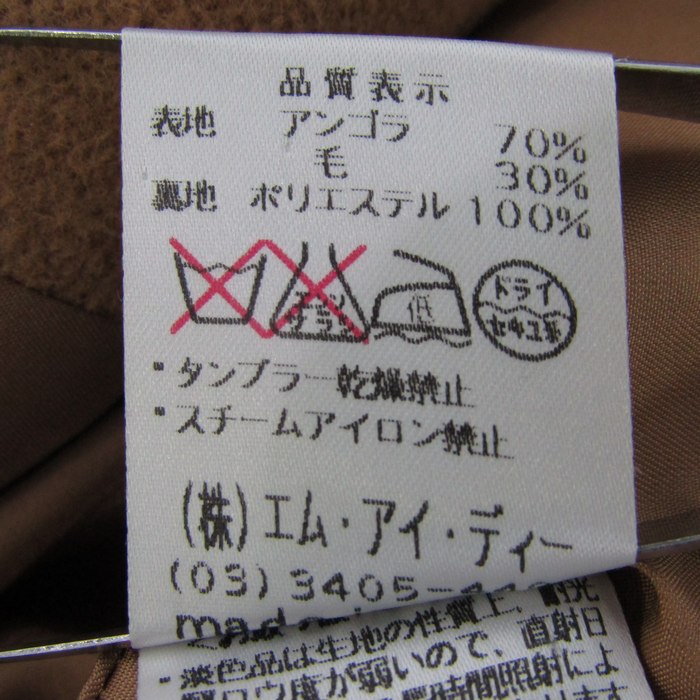 品質表示
表地 アンゴラ 70%
毛 30%
裏地 ポリエステル 100%
エンソ サラシ 低 ドライ セキユ系
・タンブラー乾燥禁止
・スチームアイロン禁止
(株)エム・アイ・ディー
(03) 3405-
mad
・淡色品は生地の性質上、耐光
堅ロウ度が弱いので、直射日
時間照射によ